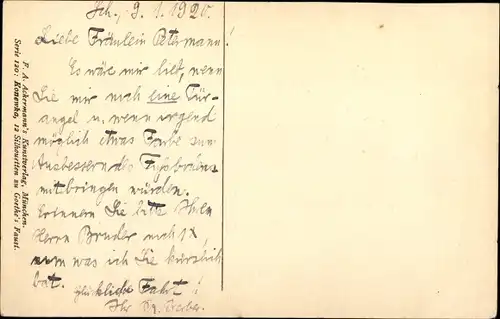 Sch., 9. 1. 1920.
Liebe Fräulein Petermann!
Es wäre mir lieb, wenn
Sie mir noch eine Tür-
angel u. wenn irgend
möglich etwas Farbe zum
Ausbessern des Fußbodens
mitbringen würden.
Erinnern Sie bitte Ihren
Herrn Bruder noch 1x
um was ich Sie kürzlich
bat. Glückliche Fahrt!
Ihr
F. A. Ackermann's Kunstverlag, München.
Serie 120: Konewka, 12 Silhouetten zu Goethe's Faust.